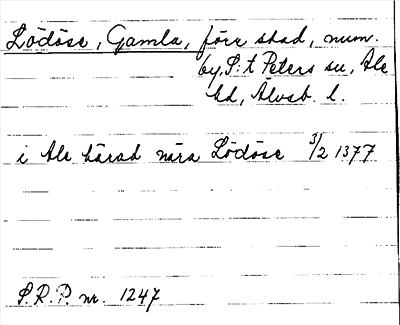 Lödöse, Gamla, förr stad, num.
by, S:t Peters sn, Ale
hd, Älvsb. l.
i Ale härad nära Lödöse 3/2 1377
S.R.P. nr. 1247